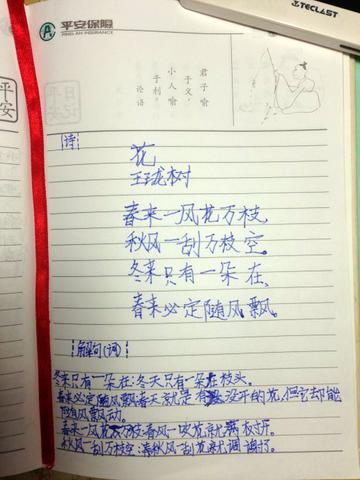 TECLAST
平安保险
PING AN INSURANCE
君子喻
于义，
小人喻
于利。
论语
平安
诗
花
王珑树
春来一风花万枝，
秋风一刮万枝空。
冬菜只有一朵在，
春来必定随风飘。
解句(词)
冬菜只有一朵在:冬天只有一朵在枝头。
春来必定随风飘:春天就是有没开的花,但它却能
随风飘动。
春来一风花万枝:春风一吹花就满树开。
秋风一刮万枝空:秋风一刮花就凋